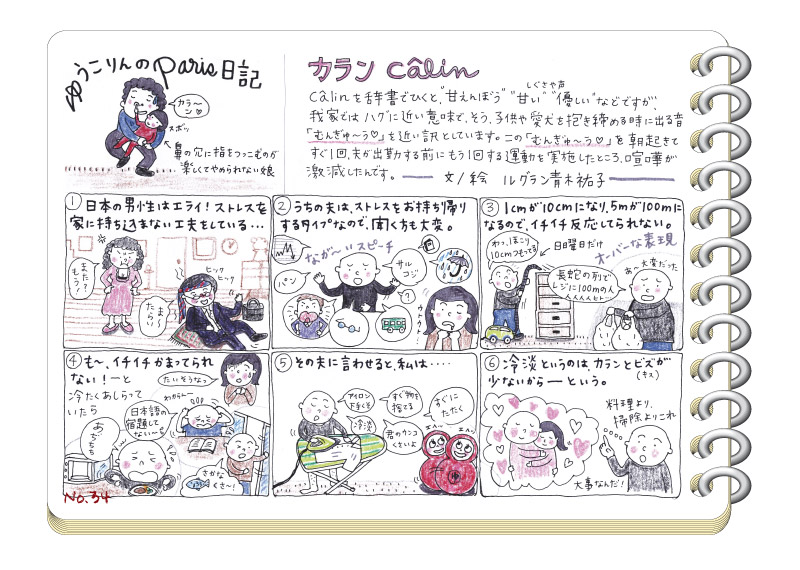 ゆうこりんのParis日記
カラ〜ン♡
スポッ
鼻の穴に指をつっこむのが
楽しくてやめられない娘
カラン câlin
câlinを辞書でひくと、"甘えんぼう""甘い""優しい"などですが、
しぐさや声
我家ではハグに近い意味で、そう、子供や愛犬を抱き締める時に出る音
「むんぎゅ〜う♡」を近い訳としています。この「むんぎゅ〜う♡」を朝起きて
すぐ1回、夫が出勤する前にもう1回する運動を実施したところ、喧嘩が
激減したんです。
文/絵 ルグラン青木祐子
①日本の男性はエライ！ストレスを
家に持ち込まない工夫をしている・・・
また？
もう！
ヒック
ヒック
ま〜
たらい
②うちの夫は、ストレスをお持ち帰り
するタイプなので、聞く方も大変。
なが〜いスピーチ
パン
サル
コジ
?
ウトウト
③1cmが10cmになり、5mが100mに
なるので、イチイチ反応してられない。
オーバーな表現
わっ、ほこり
10cmつもってる
日曜日だけ
あ〜大変だった
長蛇の列で
レジに100mの人
④も〜、イチイチかまってられ
ない！ーと
冷たくあしらって
いたら
たいそうなっ
わからん〜
日本語の
宿題して
ない〜
あぢぢぢ
さかな
くさ〜！
⑤その夫に言わせると、私は・・・・
アイロン
下手くそ
すぐ物を
捨てる
すぐに
たたく
冷淡
君のウンコ
くさいよ
エヘ〜
エヘ〜
⑥冷淡というのは、カランとビズが
(キス)
少ないからーという。
料理より、
掃除よりこれ
大事なんだ！
No.34